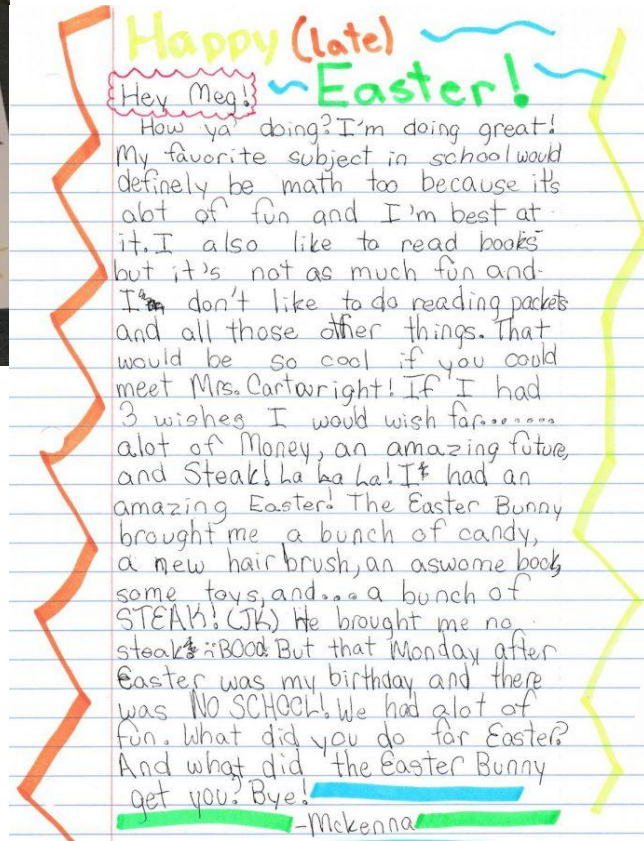 Happy (late)
Easter!
Hey Meg!
How ya' doing? I'm doing great!
My favorite subject in school would
definely be math too because it's
alot of fun and I'm best at
it. I also like to read books
but it's not as much fun and
I don't like to do reading packets
and all those other things. That
would be so cool if you could
meet Mrs. Cartwright! If I had
3 wishes I would wish for........
alot of Money, an amazing future,
and Steak! Ha ha ha! I had an
amazing Easter! The Easter Bunny
brought me a bunch of candy,
a new hair brush, an aswome book,
some toys, and... a bunch of
STEAK! (JK) He brought me no
steak BOO! But that Monday after
Easter was my birthday and there
was NO SCHOOL! We had alot of
fun. What did you do for Easter?
And what did the Easter Bunny
get you? Bye!
-Mckenna